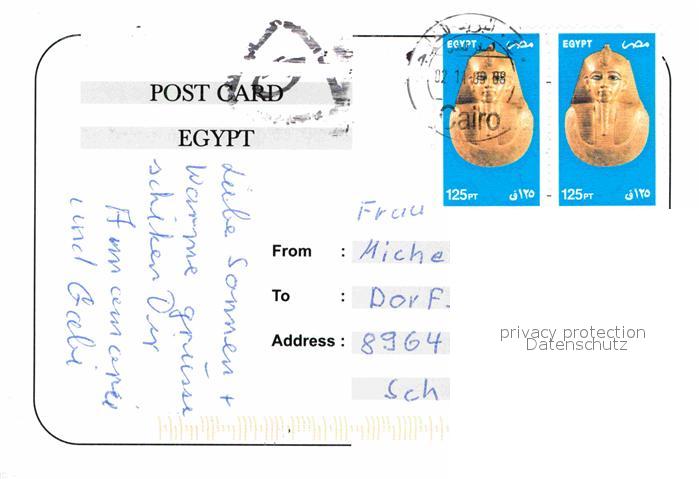 POST CARD
EGYPT
Liebe Sonnen +
warme grüsse
schiken Dir
Annemarie
und Gabi
EGYPT مصر
125PT ١٢٥ق
EGYPT مصر
125PT ١٢٥ق
Cairo
Frau
From : Miche
To : Dorf.
Address : 8964
Sch
privacy protection
Datenschutz